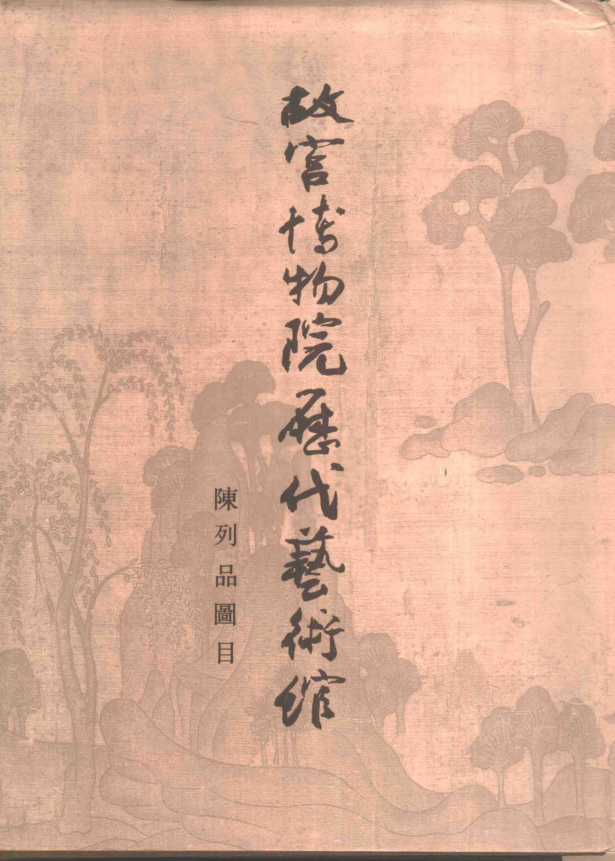 故宫博物院歷代藝術館
陳列品圖目